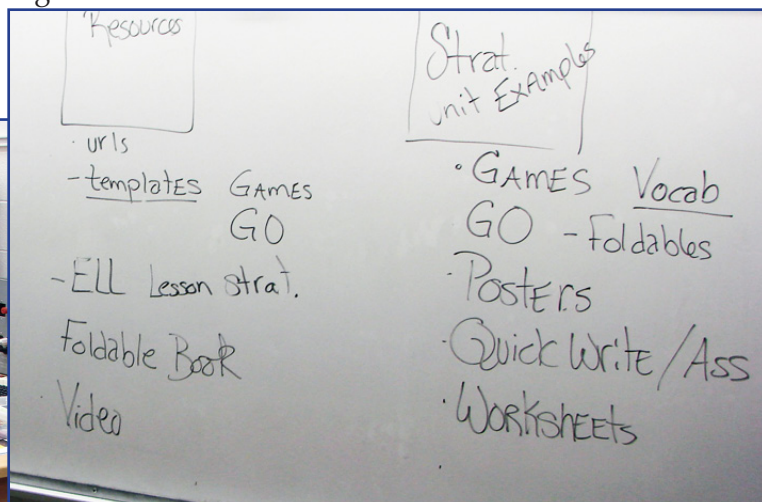 Resources
· urls
- templates GAMES
GO
- ELL Lesson strat.
Foldable Book
· Video
Strat.
unit Examples
· GAMES Vocab
GO - Foldables
· Posters
· Quick Write / Ass
· Worksheets